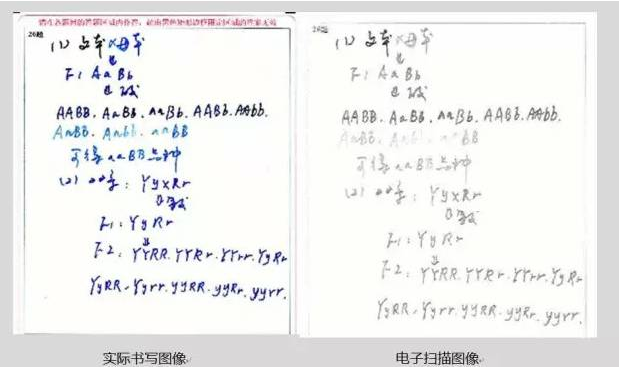 请在各题目的答题区域内作答，超出黑色矩形边框限定区域的答案无效
26题
(1) 父本×母本
F1 AaBb
AABB. AaBB. aaBb. AABb. AAbb.
AaBb. Aabb. aaBB
可得aaBB品种
(2) ：YyxRr
F1：YyRr
F2：YYRR. YYRr. YYrr. YyRr
YyRR. Yyrr. yyRR. yyRr. yyrr.
26题
(1) 父本×母本
F1 AaBb
AABB. AaBB. aaBb. AABb. AAbb.
AaBb. Aabb. aaBB
可得aaBB品种
(2) ：YyxRr
F1：YyRr
F2：YYRR. YYRr. YYrr. YyRr
YyRR. Yyrr. yyRR. yyRr. yyrr.
实际书写图像
电子扫描图像